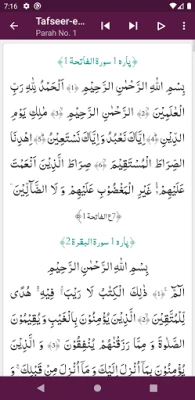 7:16
Tafseer-e...
Parah No. 1
﴿پاره 1 سورة الفاتحة 1﴾
بِسْمِ اللّٰهِ الرَّحْمٰنِ الرَّحِيْمِ ﴿1﴾ اَلْحَمْدُ لِلّٰهِ رَبِّ
الْعٰلَمِيْنَ ﴿2﴾ الرَّحْمٰنِ الرَّحِيْمِ ﴿3﴾ مٰلِكِ يَوْمِ
الدِّيْنِ ﴿4﴾ اِيَّاكَ نَعْبُدُ وَاِيَّاكَ نَسْتَعِيْنُ ﴿5﴾ اِهْدِنَا
الصِّرَاطَ الْمُسْتَقِيْمَ ﴿6﴾ صِرَاطَ الَّذِيْنَ اَنْعَمْتَ
عَلَيْهِمْ غَيْرِ الْمَغْضُوْبِ عَلَيْهِمْ وَ لَا الضَّآلِّيْنَ
﴿7ع الفاتحة 1﴾
﴿پاره 1 سورة البقرة 2﴾
بِسْمِ اللّٰهِ الرَّحْمٰنِ الرَّحِيْمِ
الٓمّٓ ﴿1﴾ ذٰلِكَ الْكِتٰبُ لَا رَيْبَ ۛ فِيْهِ ۛ هُدًى
لِّلْمُتَّقِيْنَ ﴿2﴾ الَّذِيْنَ يُؤْمِنُوْنَ بِالْغَيْبِ وَيُقِيْمُوْنَ
الصَّلٰوةَ وَ مِمَّا رَزَقْنٰهُمْ يُنْفِقُوْنَ ﴿3﴾ وَ الَّذِيْنَ
يُؤْمِنُوْنَ بِمَآ اُنْزِلَ اِلَيْكَ وَ مَآ اُنْزِلَ مِنْ قَبْلِكَ ۚ وَ